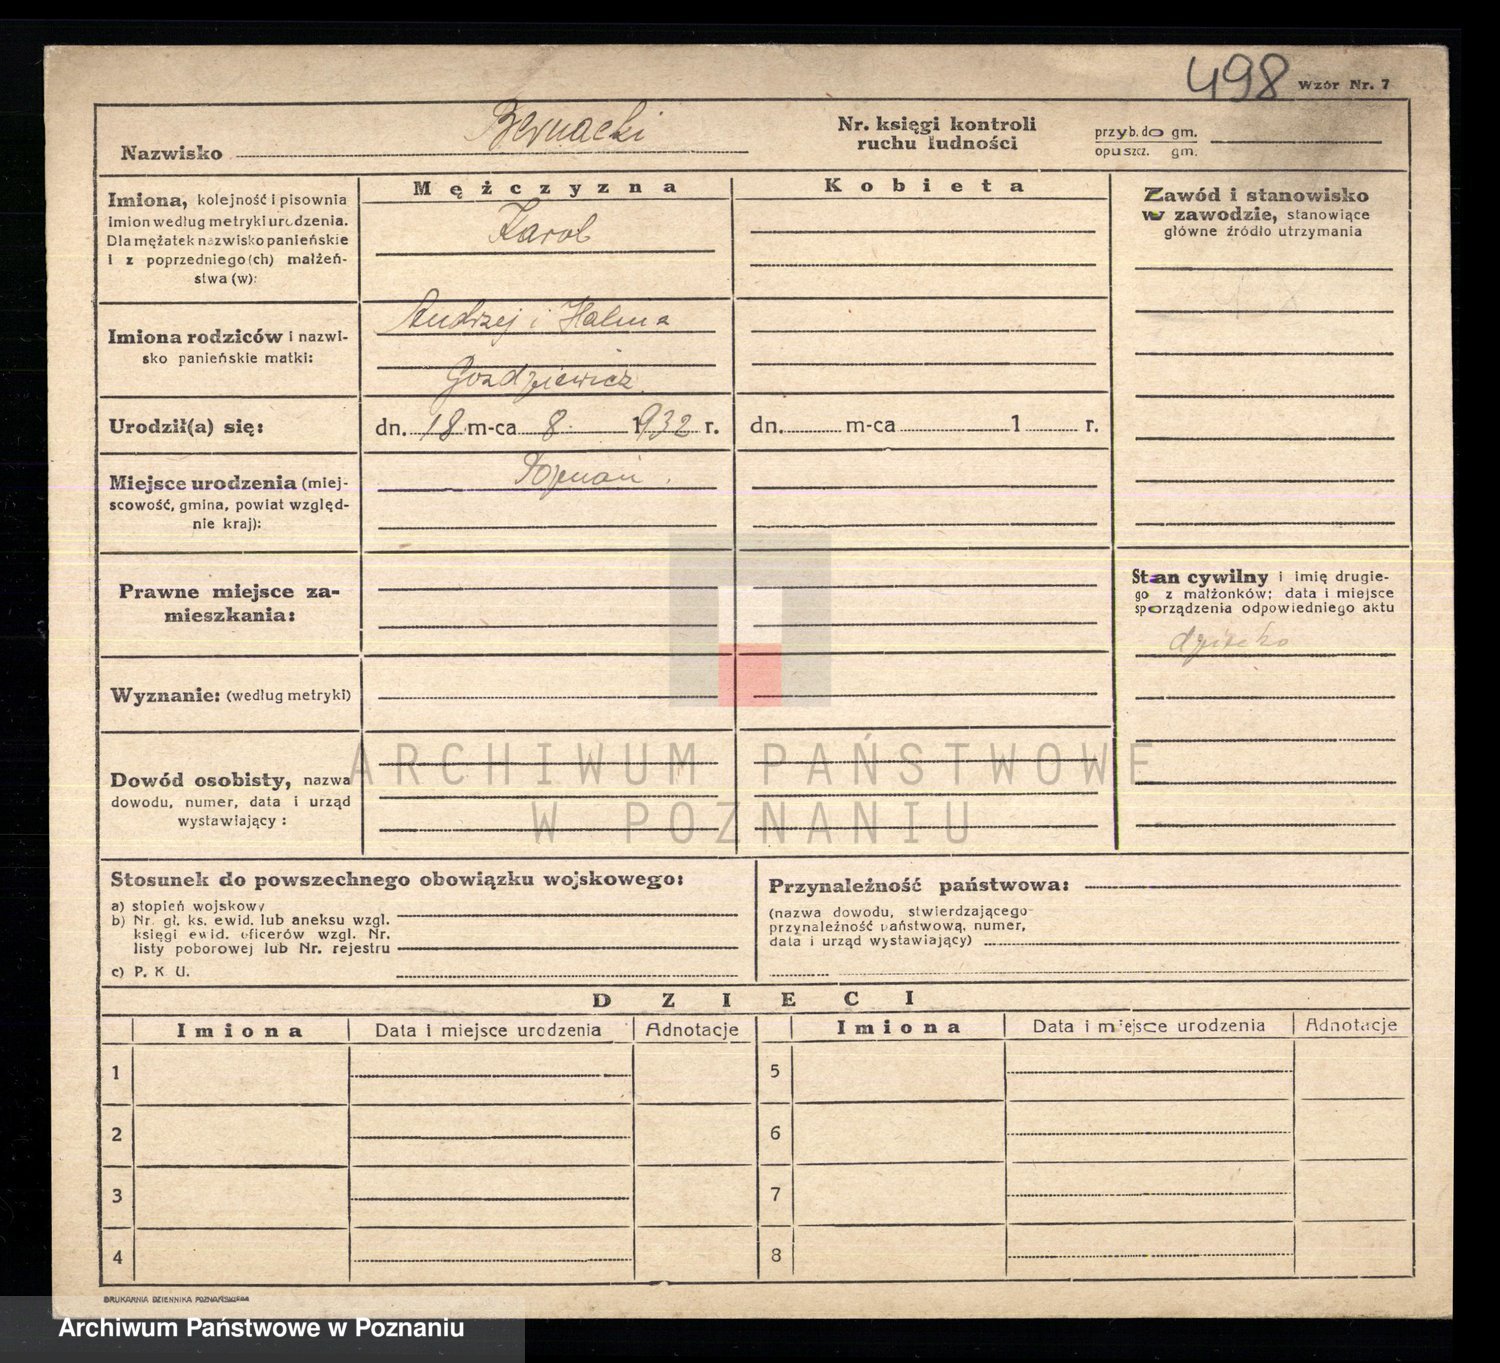 498 Wzór Nr. 7
Nazwisko Bernacki
Nr. księgi kontroli
ruchu ludności
przyb. do gm.
opuszcz. gm.
Imiona, kolejność i pisownia
imion według metryki urodzenia.
Dla mężatek nazwisko panieńskie
i z poprzedniego(ch) małżeń-
stwa (w):
Mężczyzna
Karol
Kobieta
Zawód i stanowisko
w zawodzie, stanowiące
główne źródło utrzymania
Imiona rodziców i nazwi-
sko panieńskie matki:
Andrzej i Halina
Gozdziewicz
Urodził(a) się:
dn. 18 m-ca 8. 1932 r.
dn. m-ca 1 r.
Miejsce urodzenia (miej-
scowość, gmina, powiat względ-
nie kraj):
Poznań.
Prawne miejsce za-
mieszkania:
Stan cywilny i imię drugie-
go z małżonków; data i miejsce
sporządzenia odpowiedniego aktu
dziecko
Wyznanie: (według metryki)
Dowód osobisty, nazwa
dowodu, numer, data i urząd
wystawiający:
ARCHIWUM PAŃSTWOWE
W POZNANIU
Stosunek do powszechnego obowiązku wojskowego:
a) stopień wojskowy
b) Nr. gł. ks. ewid. lub aneksu wzgl.
księgi ewid. oficerów wzgl. Nr.
listy poborowej lub Nr. rejestru
c) P. K. U.
Przynależność państwowa:
(nazwa dowodu, stwierdzającego
przynależność państwową, numer,
data i urząd wystawiający)
DZIECI
Imiona Data i miejsce urodzenia Adnotacje Imiona Data i miejsce urodzenia Adnotacje
1 5
2 6
3 7
4 8
DRUKARNIA DZIENNIKA POZNAŃSKIEGO
Archiwum Państwowe w Poznaniu